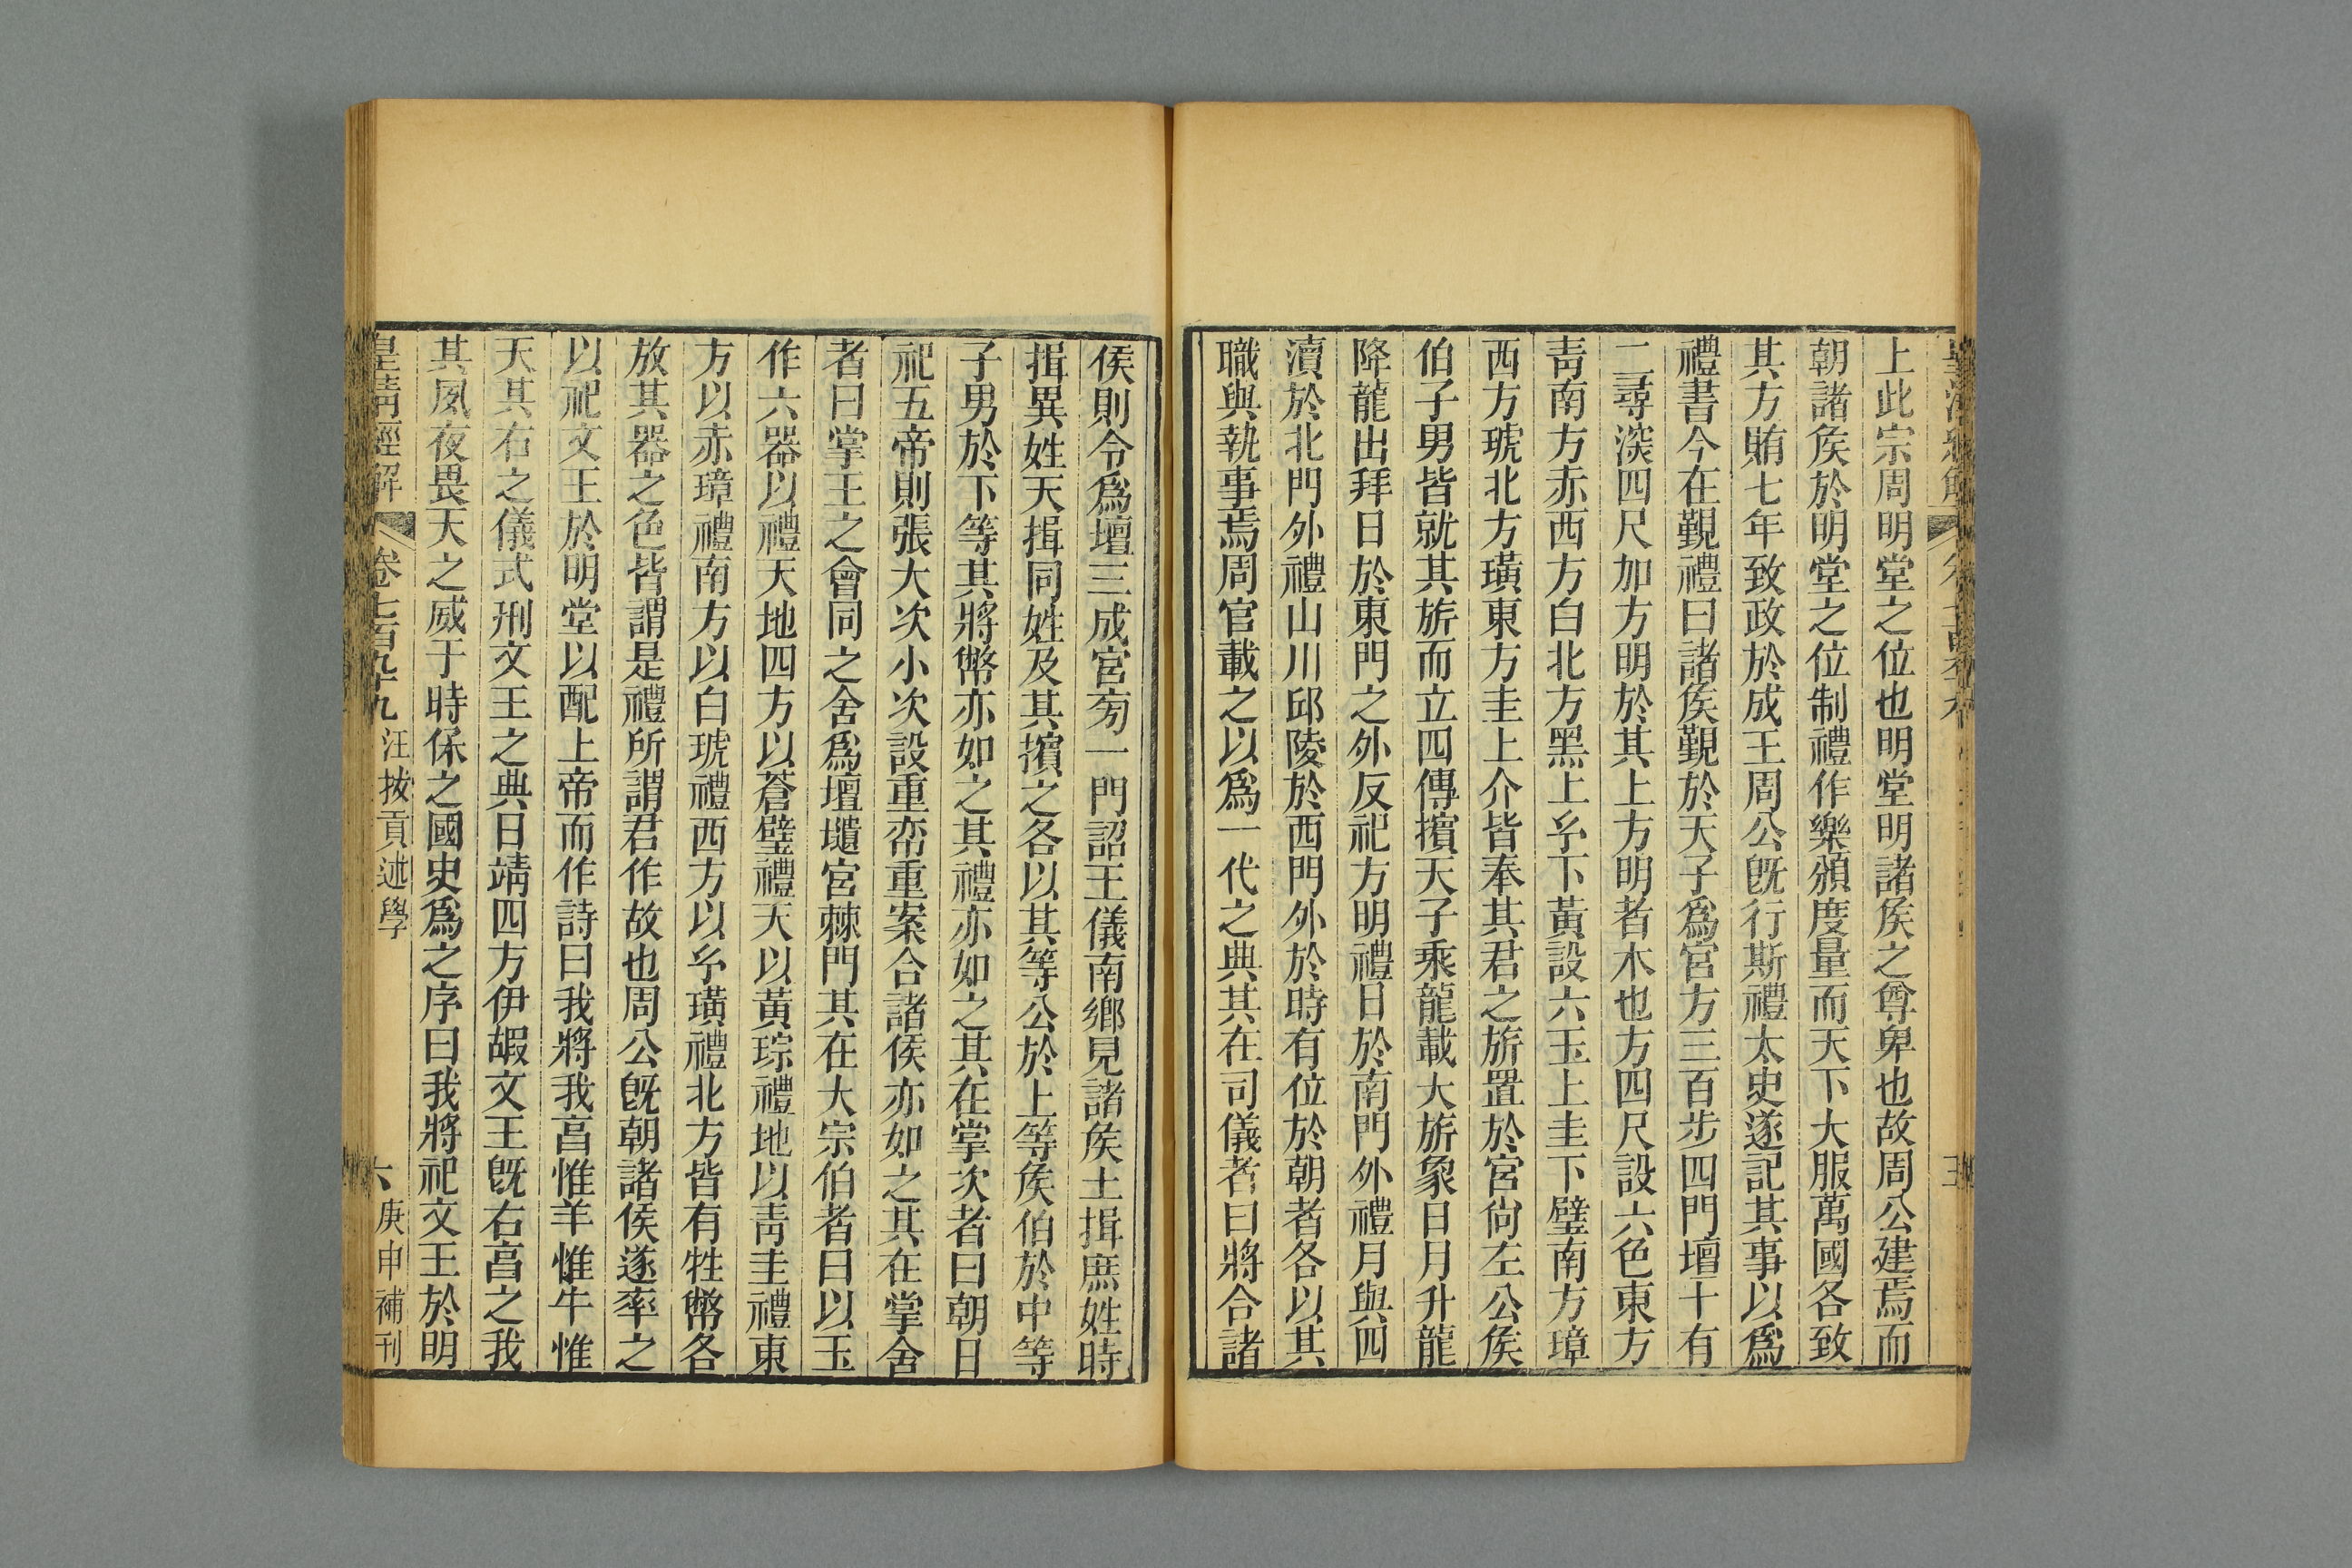 上此宗周明堂之位也明堂明諸矦之尊卑也故周公建焉而
朝諸矦於明堂之位制禮作樂頒度量而天下大服萬國各致
其方賄七年致政於成王周公旣行斯禮太史遂記其事以爲
禮書今在覲禮曰諸矦覲於天子爲宮方三百步四門壇十有
二尋深四尺加方明於其上方明者木也方四尺設六色東方
靑南方赤西方白北方黑上𤣥下黃設六玉上圭下璧南方璋
西方琥北方璜東方圭上介皆奉其君之旂置於宮尙左公矦
伯子男皆就其旂而立四傳擯天子乘龍載大旂象日月升龍
降龍出拜日於東門之外反祀方明禮日於南門外禮月與四
瀆於北門外禮山川邱陵於西門外於時有位於朝者各以其
職與執事焉周官載之以爲一代之典其在司儀者曰將合諸
侯則令爲壇三成宮旁一門詔王儀南鄉見諸矦土揖庶姓時
揖異姓天揖同姓及其擯之各以其等公於上等矦伯於中等
子男於下等其將幣亦如之其禮亦如之其在掌次者曰朝日
祀五帝則張大次小次設重帟重案合諸侯亦如之其在掌舍
者曰掌王之會同之舍爲壇壝宮棘門其在大宗伯者曰以玉
作六器以禮天地四方以蒼璧禮天以黃琮禮地以靑圭禮東
方以赤璋禮南方以白琥禮西方以𤣥璜禮北方皆有牲幣各
放其器之色皆謂是禮所謂君作故也周公旣朝諸侯遂率之
以祀文王於明堂以配上帝而作詩曰我將我亯惟羊惟牛惟
天其右之儀式刑文王之典日靖四方伊嘏文王旣右亯之我
其夙夜畏天之威于時保之國史爲之序曰我將祀文王於明
皇淸經解 卷七百九十九 汪拔貢述學 六 庚申補刊